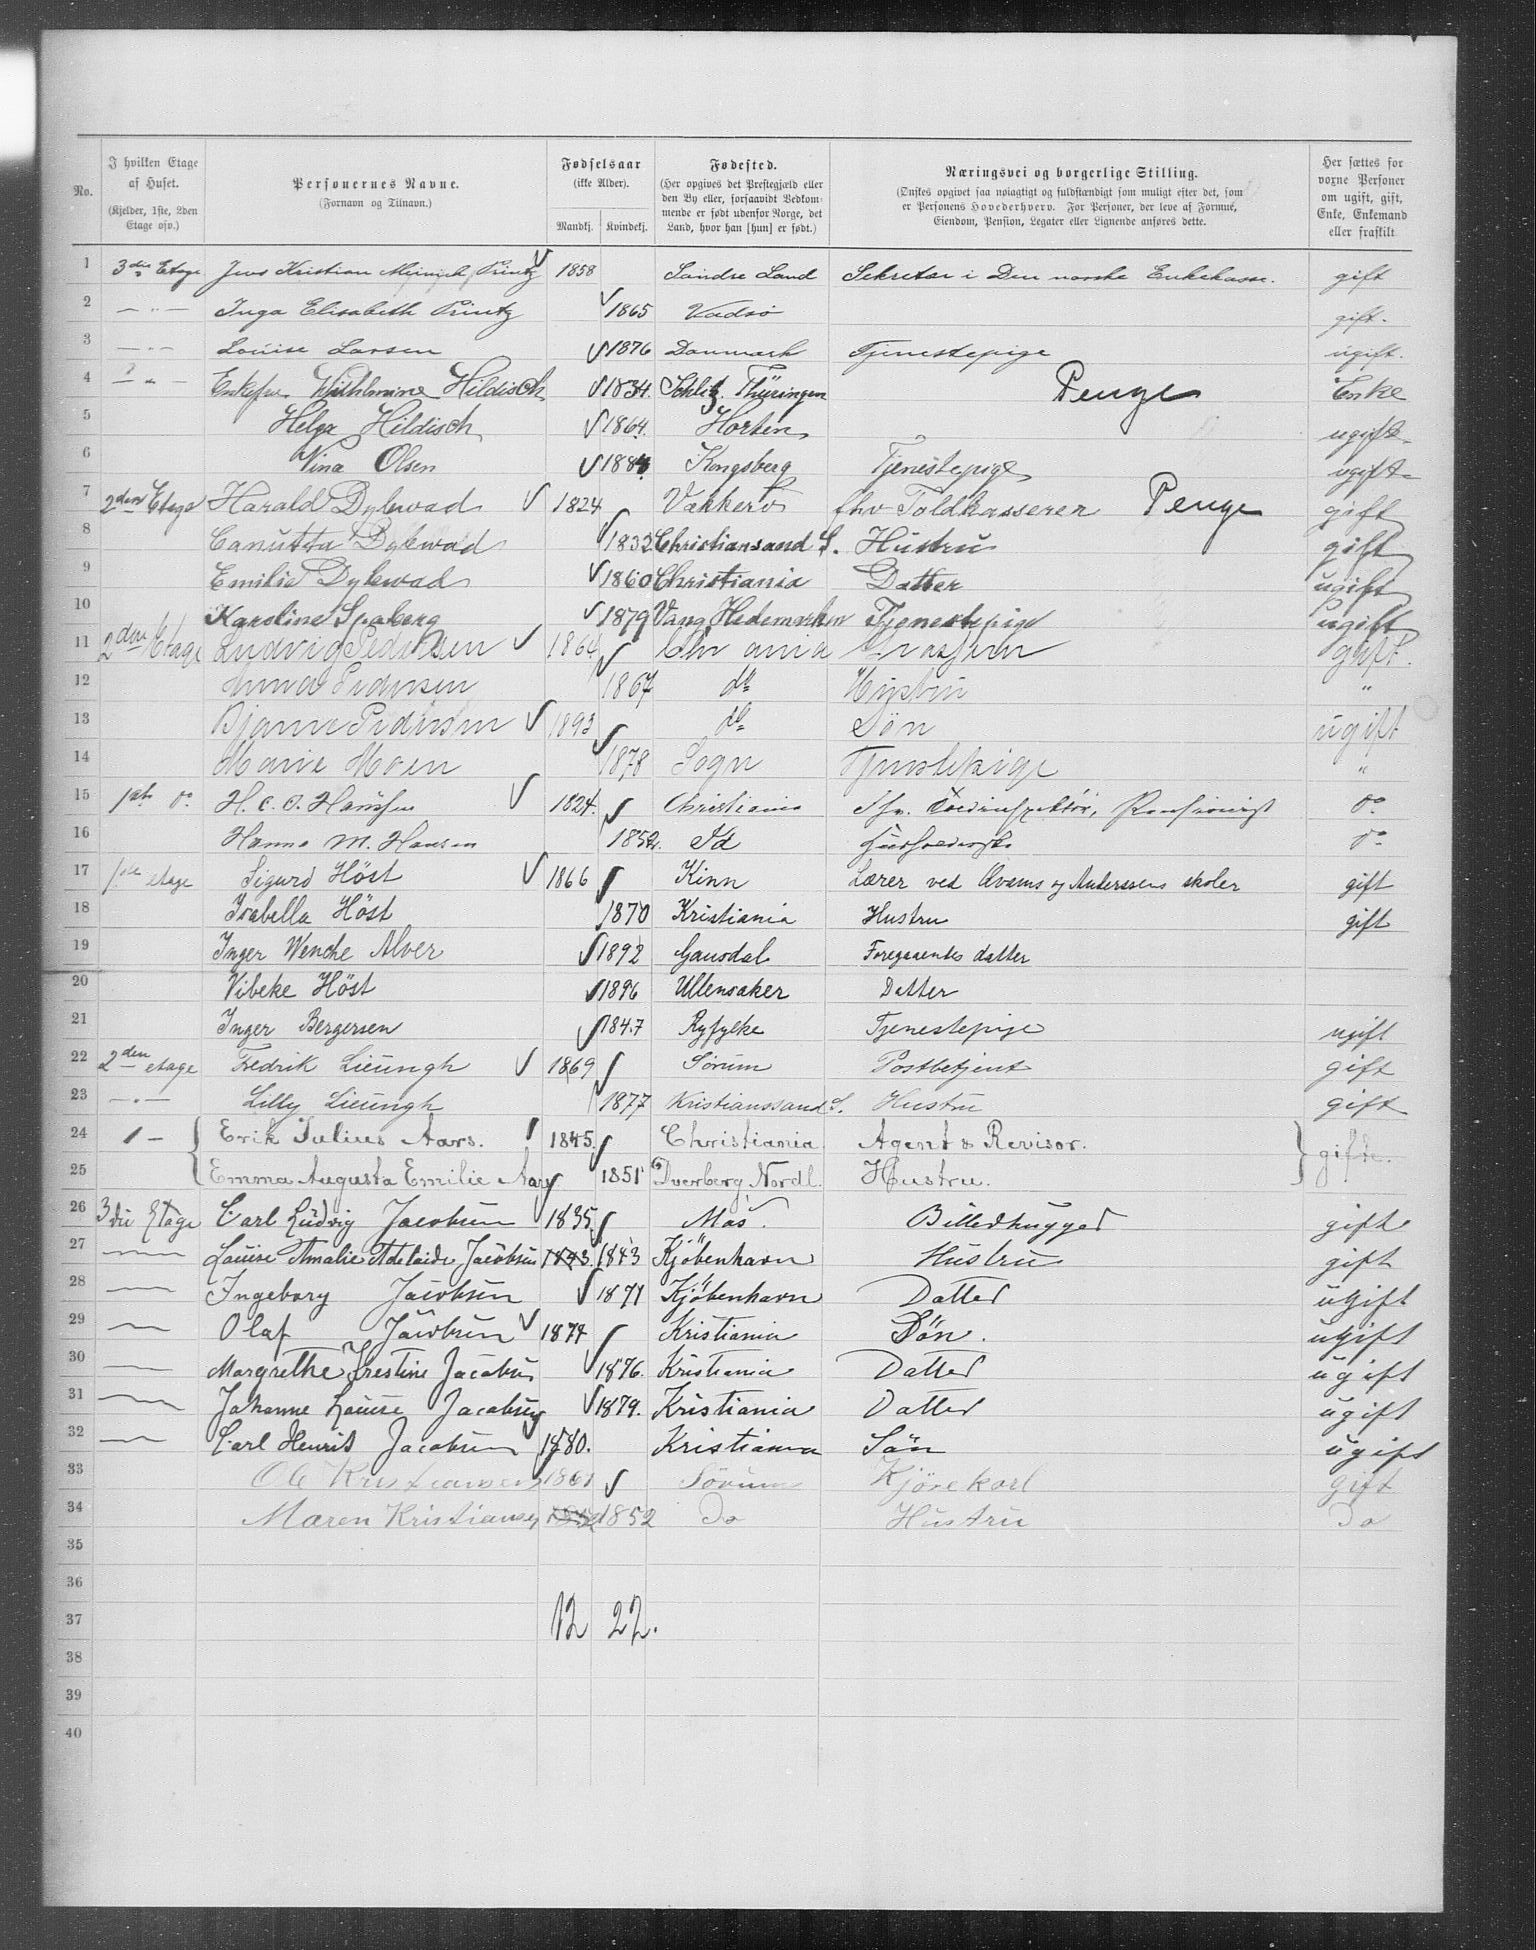 No.
I hvilken Etage af Huset. (Kjelder, 1ste, 2den Etage osv.)
Personernes Navne. (Fornavn og Tilnavn.)
Fødselsaar (ikke Alder). Mandkj. Kvindekj.
Fødested. (Her opgives det Prestegjæld eller den By eller, forsaavidt Vedkommende er født udenfor Norge, det Land, hvor han [hun] er født.)
Næringsvei og borgerlige Stilling. (Ønskes opgivet saa nøiagtigt og fuldstændigt som muligt efter det, som er Personens Hovederhverv. For Personer, der leve af Formue, Eiendom, Pension, Legater eller Lignende anføres dette.
Her sættes for voxne Personer om ugift, gift, Enke, Enkemand eller fraskilt
1 3die Etage Jens Kristian Meinich Printz 1858 Søndre Land Sekretær i Den norske Enkekasse. gift
2 — " — Inga Elisabeth Printz 1865 Vadsø gift.
3 — " — Louise Larsen 1876 Danmark Tjenestepige ugift.
4 — " — Enkefru Wilhelmine Hildisch 1834 Schleiz. Thüringen Penge Enke
5 Helga Hildisch 1864. Horten ugift
6 Vina Olsen 1884 Kongsberg Tjenestepige ugift
7 2den Etage Harald Dylewad 1824 Vækkerø fhv Toldkasserer Penge gift
8 Canutta Dylewad 1832 Christiansand S. Hustru gift
9 Emilie Dylewad 1860 Christiania Datter ugift
10 Karoline 1879 Vang Hedemarken Tjenestepige ugift
11 2den Etage Ludvig Pedersen 1864 Chr ania gift.
12 Anna Pedersen 1867 do Hustru "
13 Bjarne Pedersen 1893 do Søn ugift
14 Marie Moen 1878 Sogn Tjenestepige "
15 1ste do H. C. O. Hansen 1824. Christiania Fhv. Pensionist do
16 Hanna M. Hansen 1852. Id do
17 1ste etage Sigurd Höst 1866 Kinn Lærer ved Qvams og Anderssens skoler gift
18 Isabella Höst 1870 Kristiania Hustru gift
19 Inger Wenche Alver 1892 Gausdal Foregaaendes datter
20 Vibeke Höst 1896 Ullensaker Datter
21 Inger Bergersen 1847 Ryfylke Tjenestepige ugift
22 2den etage Fredrik Lieungh 1869 Sørum Postbetjent gift
23 — " — Lilly Lieungh 1877 Kristianssand S. Hustru gift
24 1 — Erik Julius Aars. 1845. Christiania. Agent & Revisor. gifte.
25 Emma Augusta Emilie Aars 1851 Dverberg Nordl. Hustru.
26 3die Etage Carl Ludvig Jacobsen 1835 Mos. Billedhugger gift
27 — Louise Amalie Adelaide Jacobsen 1843. 1843 Kjöbenhavn Hustru gift
28 — Ingeborg Jacobsen 1871 Kjöbenhavn Datter ugift
29 — Olaf Jacobsen 1874 Kristiania Sön. ugift
30 — Margrethe Krestine Jacobsen 1876. Kristiania Datter ugift
31 — Johanne Louise Jacobsen 1879. Kristiania Datter ugift
32 — Carl Henrik Jacobsen 1880. Kristiania Sön ugift
33 Ole Kristiansen 1861 Sörum Kjörekarl gift
34 Maren Kristiansen 1852 Do Hustru Do
35
36
37 12 22.
38
39
40